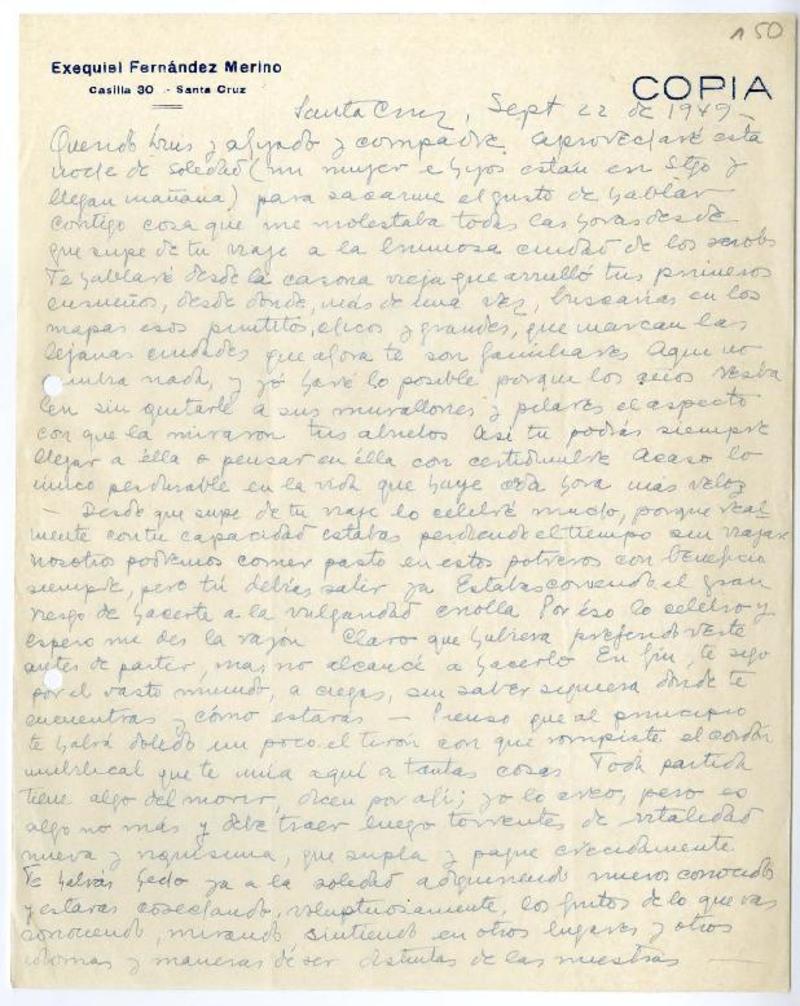 150
Exequiel Fernández Merino
Casilla 30 - Santa Cruz
COPIA
Santa Cruz, Sept 22 de 1949-
Querido Luis y ahijado y compadre. Aprovecharé esta
noche de soledad (mi mujer e hijos están en Stgo y
llegan mañana) para sacarme el gusto de hablar
contigo cosa que me molestaba todas las horas desde
que supe de tu viaje a la luminosa ciudad de los
Te hablaré desde la casona vieja que arrulló tus primeros
ensueños, desde donde, más de una vez, buscarías en los
mapas esos puntitos, chicos y grandes, que marcan las
lejanas ciudades que ahora te son familiares Aquí no
cambia nada, y yo haré lo posible porque los años resba
len sin quitarle a sus murallones y pilares el aspecto
con que la miraron tus abuelos Así tu podrás siempre
llegar a élla o pensar en élla con certidumbre Acaso lo
único perdurable en la vida que huye cada hora más veloz
- Desde que supe de tu viaje lo celebré mucho, porque real-
mente con tu capacidad estabas perdiendo el tiempo sin viajar
nosotros podremos comer pasto en estos potreros con beneficio
siempre, pero tú debías salir ya Estabas corriendo el gran
riesgo de hacerte a la vulgaridad criolla Por éso lo celebro y
espero me des la razón Claro que hubiera preferido verte
antes de partir, mas no alcancé a hacerlo En fin, te sigo
por el vasto mundo, a ciegas, sin saber siquiera donde te
encuentras y cómo estarás - Pienso que al principio
te habrá dolido un poco el tirón con que rompiste el cordón
umbilical que te unía aquí a tantas cosas Toda partida
tiene algo del morir, dicen por ahí; yo lo creo, pero es
algo no más y debe traer luego torrentes de vitalidad
nueva y riquísima, que supla y pague crecidamente
Te habrás hecho ya a la soledad adquiriendo nuevos conocidos
y estarás cosechando, voluptuosamente, los frutos de lo que vas
conociendo, mirando, sintiendo en otros lugares y otros
idiomas y maneras de ser distintas de las nuestras -